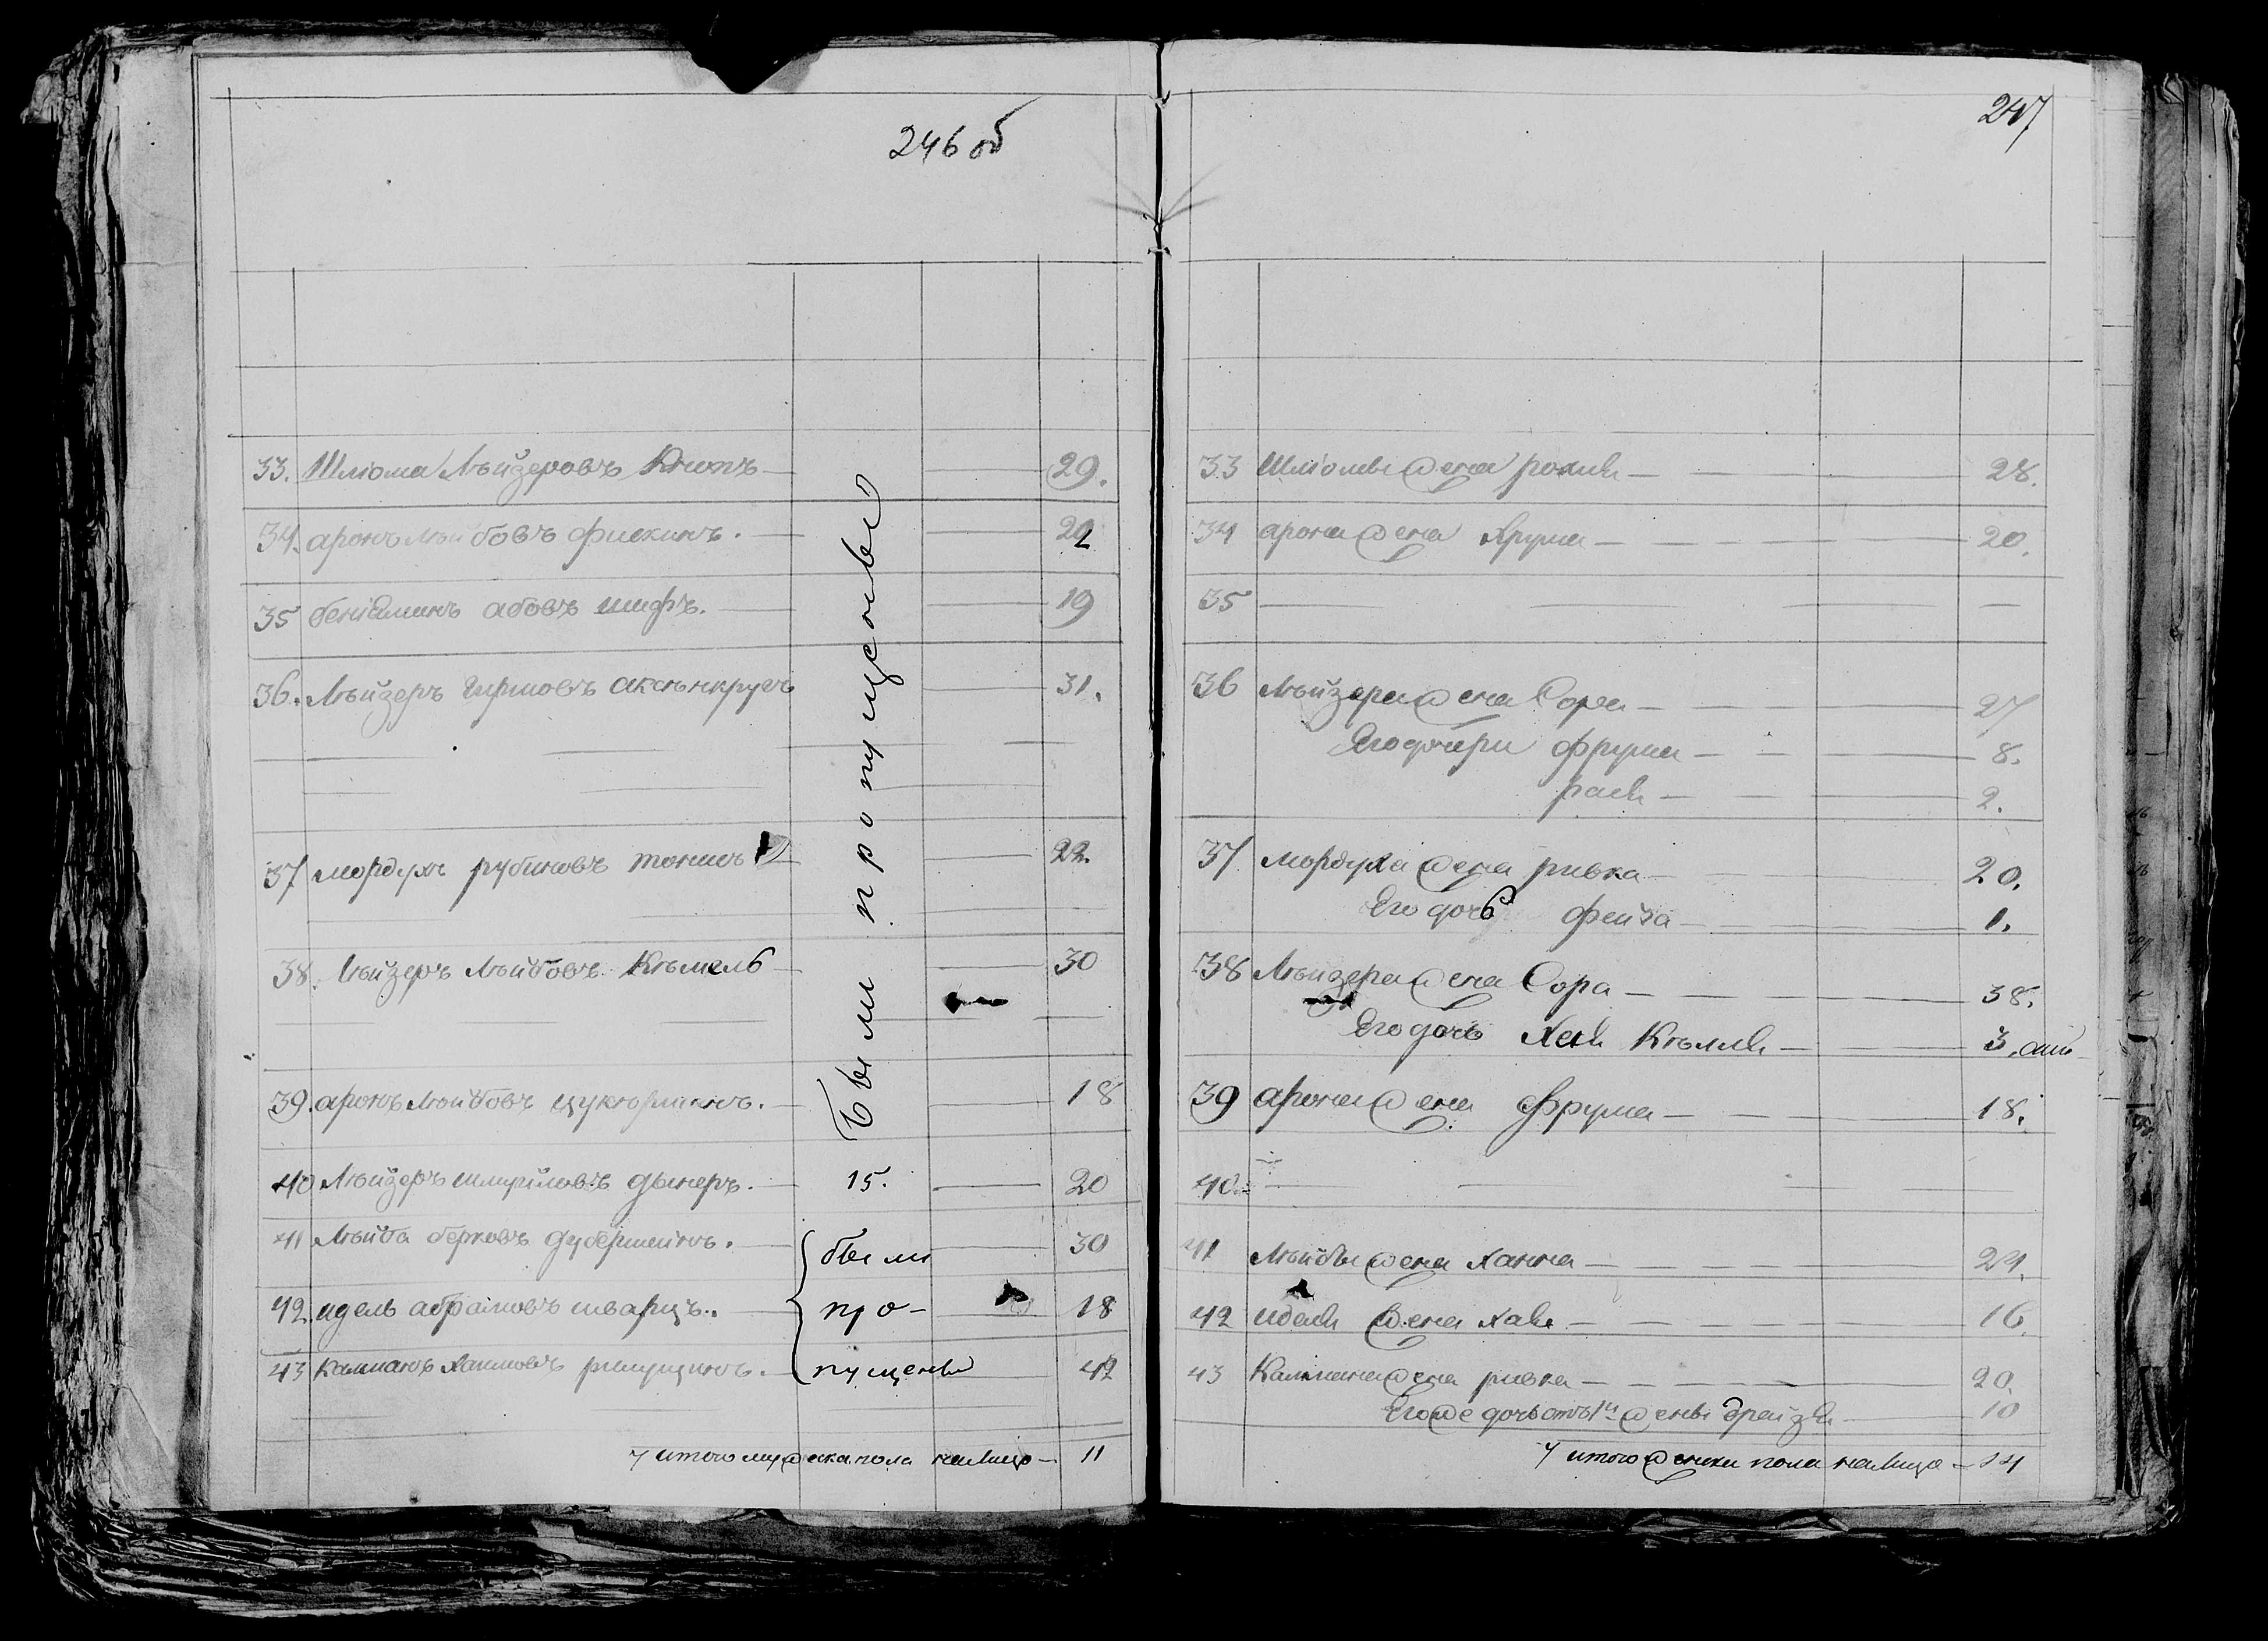 246 об
33. Шлiома Лѣйзеровъ Книпъ — 29.
34. аронъ Лѣйбовъ фискинъ. — 22
35 бенiаминъ абовъ шифъ. — 19
36. Лѣйзеръ Гиршовъ аксѣнкругъ — 31.
37 мордухъ рубиновъ — 22.
38. Лѣйзеръ Лѣйбовъ Кѣмель — 30
39. аронъ Лѣйбовъ цукѣрманъ. — 18
были пропущены
40 Лѣйзеръ шмуйловъ дынеръ. — 15. — 20
41 Лѣйба берковъ — были — 30
42. идель абрамовъ шварцъ. — про- — 18
43 калманъ Хаимовъ — пущены — 42
итого мужеска пола налицо — 11
247
33 Шлiомы жена — 28.
34 арона жена Фрума — 20.
35 —
36 Лѣйзера жена Сора — 27
Его дочери фрума — 8.
рася — 2.
37 мордуха жена ривка — 20.
Его дочь фейга — 1.
38 Лѣйзера жена Сора — 38.
Его дочь Хая — 3.
39 арона жена Фрума — 18.
40. —
41 Лѣйбы жена Ханна — 21.
42 иделя жена хая — 16.
43 Калмана жена ривка — 20.
Егоже дочь отъ 1й жены дрейзя — 10
итого женска пола налицо — 14